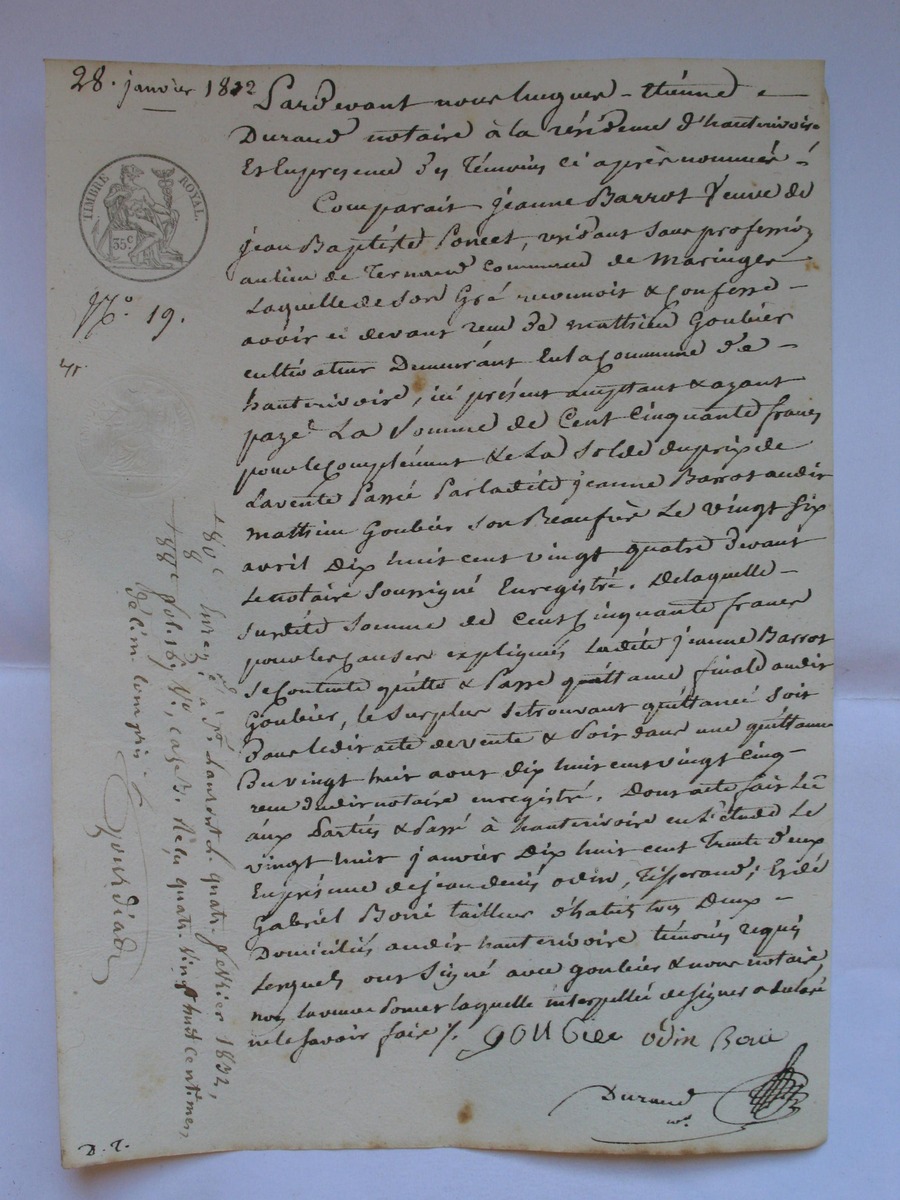 28. janvier 1832
Pardevant nous hugues - étienne
Durand notaire à la résidence d'hauterivoire
Et En presence des Témoins ci après nommés
Comparait jeanne Barrot veuve de
jean Baptiste Poncet, residant sans profession
au lieu de Ternand commune de Maringes
Laquelle de son Gré reconnoit & confesse
avoir ci devant reçu de mathieu Goubier
cultivateur Demeurant En la commune de
hauterivoire, ici présent acceptant & ayant
payé La somme de Cent cinquante francs
pour le complément & la solde du prix de
La vente Passé Par la dite jeanne Barrot audit
mathieu Goubier son Beaufrère Le vingt six
avril Dix huit cent vingt quatre devant
Le notaire soussigné Enregistré. De laquelle
susdite somme de cent cinquante francs
pour les causes expliqués La dite jeanne Barrot
se contente quitte & Passe quittance finale audit
Goubier, le surplus se trouvant quittancé soit
Dans ledit acte de vente & soit dans une quittance
Du vingt huit aout dix huit cent vingt cinq
reçu dudit notaire enregistré. Dont acte fait Lu
aux Parties & Passé à hauterivoire en l'étude Le
vingt huit janvier Dix huit cent Trente deux
En présence de jean denis odin, Tisserand; Et de
Gabriel Borie tailleur d'habits tous Deux
Domiciliés audit hauterivoire témoins requis
Lesquels ont signé avec goubier & nous notaire
non la veuve Poncet laquelle interpellée de signer a declaré
ne le savoir faire /.
goubier odin Borie
Durand
TIMBRE ROYAL.
35 c
N.º 19.
Enregé à St. Laurent L. quatre février 1832,
fol. 189 Vº, case 3. Reçu quatre vingt huit centimes,
décime compris.
D. T.